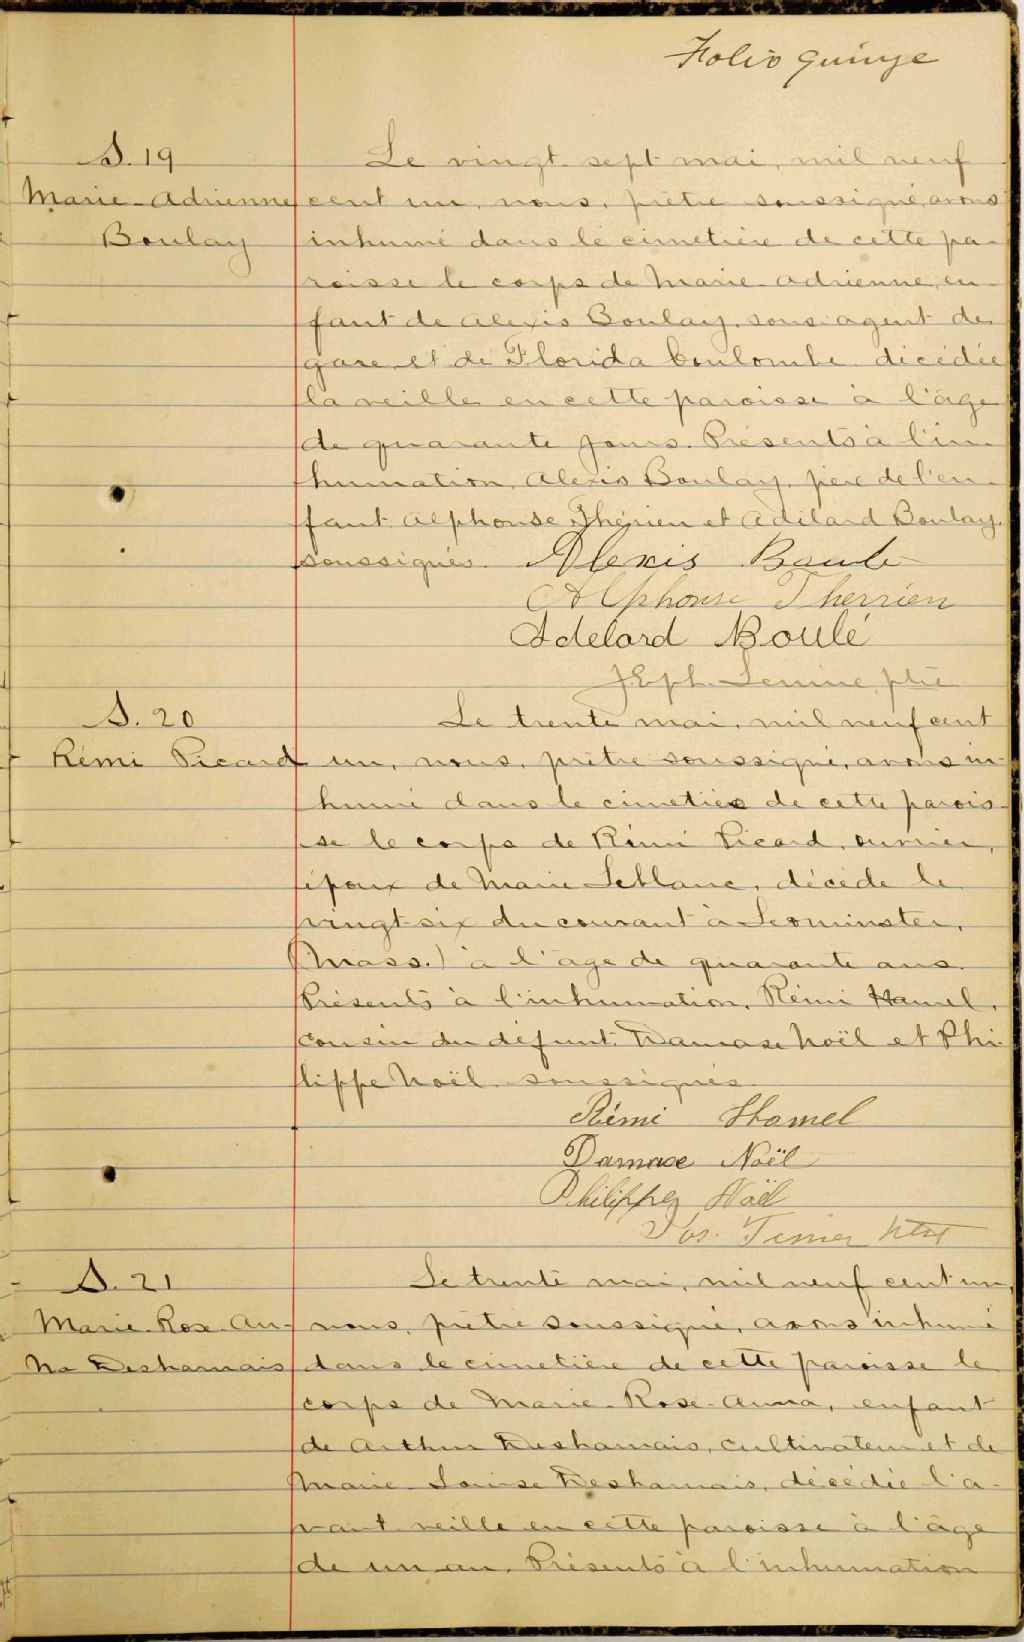 Folio quinze
S. 19
Marie-Adrienne
Boulay
Le vingt-sept mai, mil neuf
cent un, nous, prêtre soussigné, avons
inhumé dans le cimetière de cette pa-
roisse le corps de Marie-Adrienne, en-
fant de Alexis Boulay, sous-agent de
gare, et de Florida Coulombe décédée
la veille en cette paroisse à l'âge
de quarante jours. Présents à l'in-
humation, Alexis Boulay, père de l'en-
fant, Alphonse Thérien et Adélard Boulay,
soussignés.
Alexis Boule
Alphonse Therrien
Adelard Boulé
J. Eph. ptre
S. 20
Rémi Picard
Le trente mai, mil neuf cent
un, nous, prêtre soussigné, avons in-
humé dans le cimetière de cette parois-
se le corps de Rémi Picard, ouvrier,
époux de Marie Leblanc, décédé le
vingt-six du courant à Leominster,
(Mass.) à l'âge de quarante ans.
Présents à l'inhumation, Rémi Hamel,
cousin du défunt, Damase Noël et Phi-
lippe Noël, soussignés.
Rémi Hamel
Damase Noël
Philippe Noël
Jos.
S. 21
Marie-Rose-An-
na Desharnais
Le trente mai, mil neuf cent un,
nous, prêtre soussigné, avons inhumé
dans le cimetière de cette paroisse le
corps de Marie-Rose-Anna, enfant
de Arthur Desharnais, cultivateur et de
Marie-Louise Desharnais, décédée l'a-
vant-veille en cette paroisse à l'âge
de un an. Présents à l'inhumation